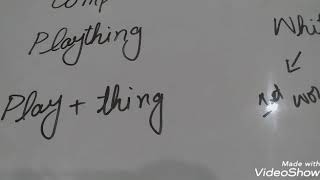 Comp
Plaything
Play + thing
Whi
Made with
VideoShow